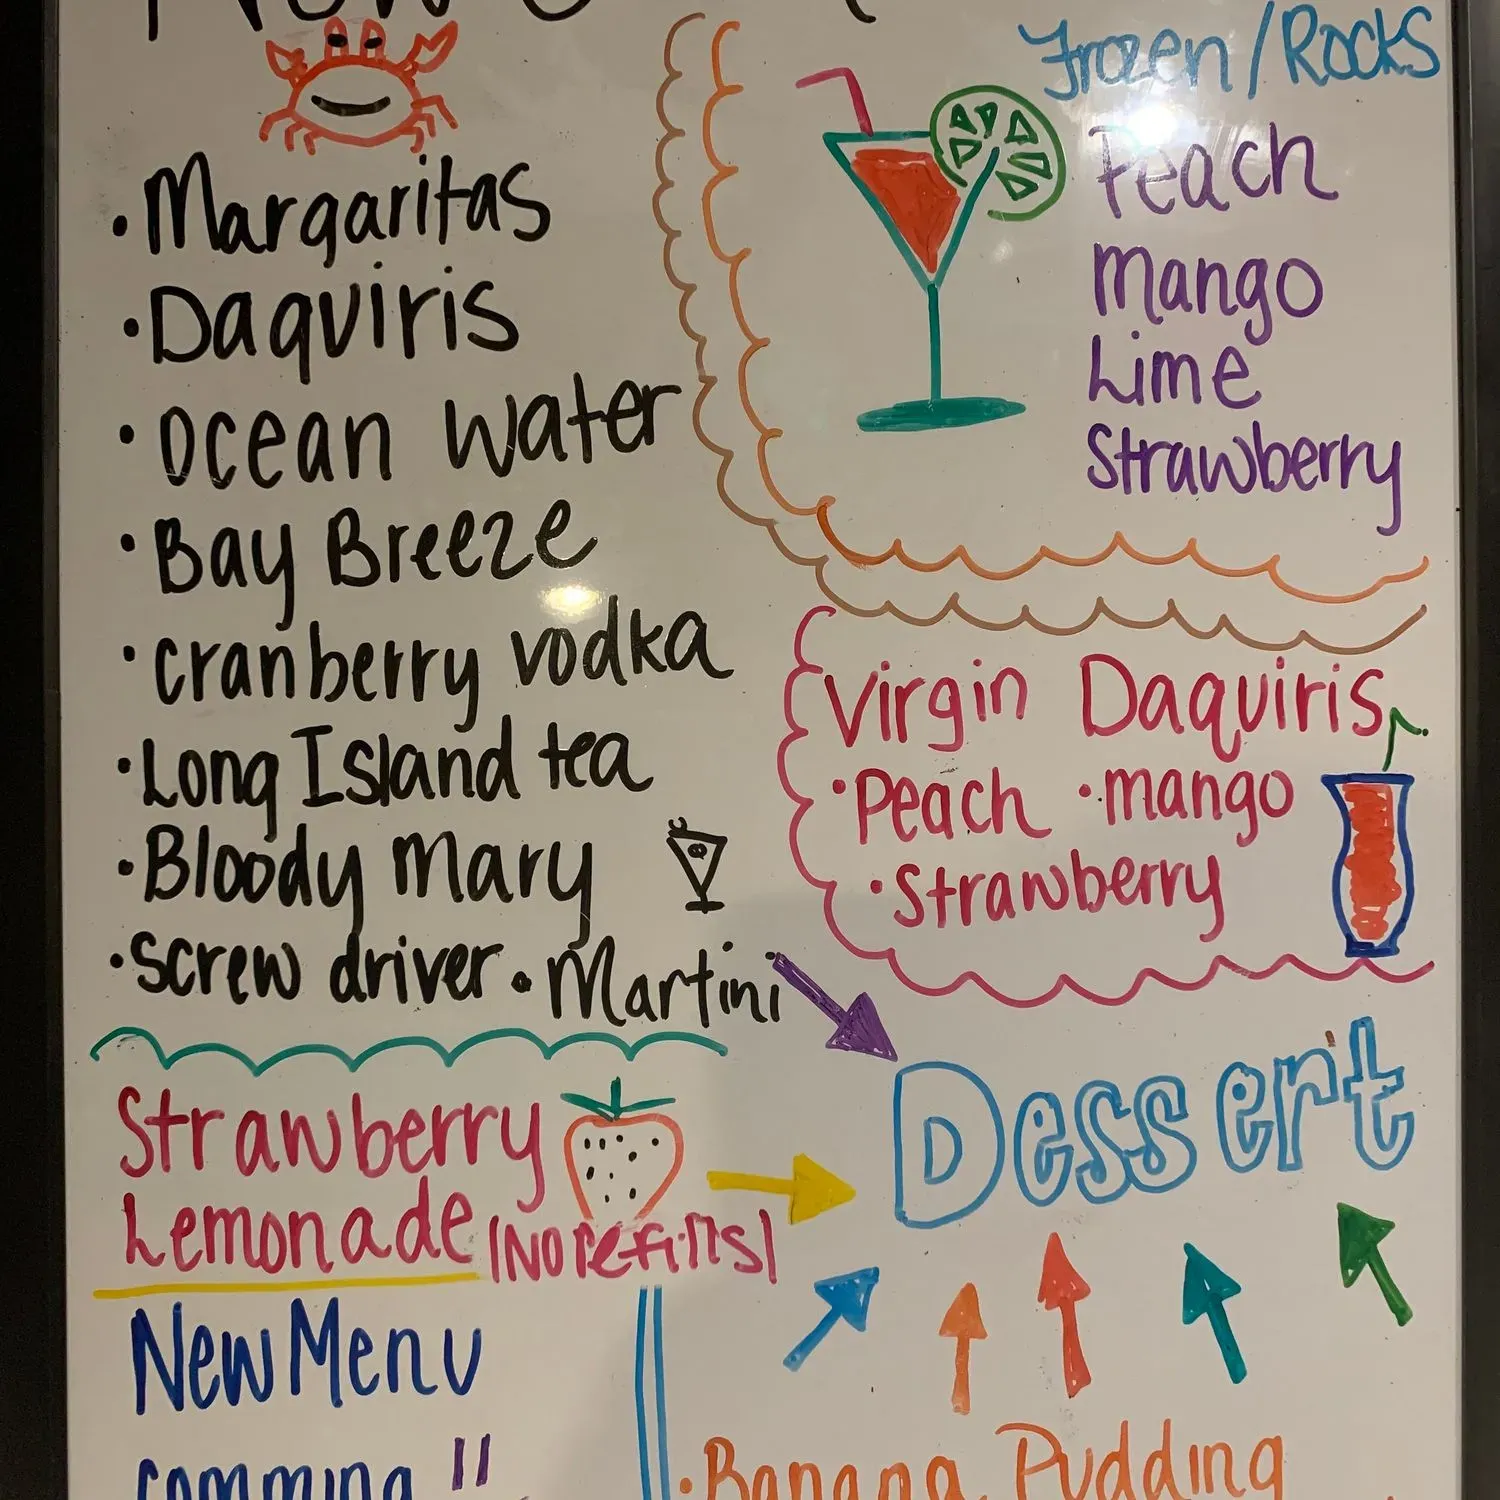 • Margaritas
• Daquiris
• Ocean Water
• Bay Breeze
• cranberry vodka
• Long Island tea
• Bloody Mary
• Screw driver • Martini
Frozen / Rocks
Peach
Mango
Lime
Strawberry
Virgin Daquiris
• Peach • mango
• Strawberry
Strawberry
Lemonade (No refills)
New Menu
comming !!
Dessert
• Banana Pudding